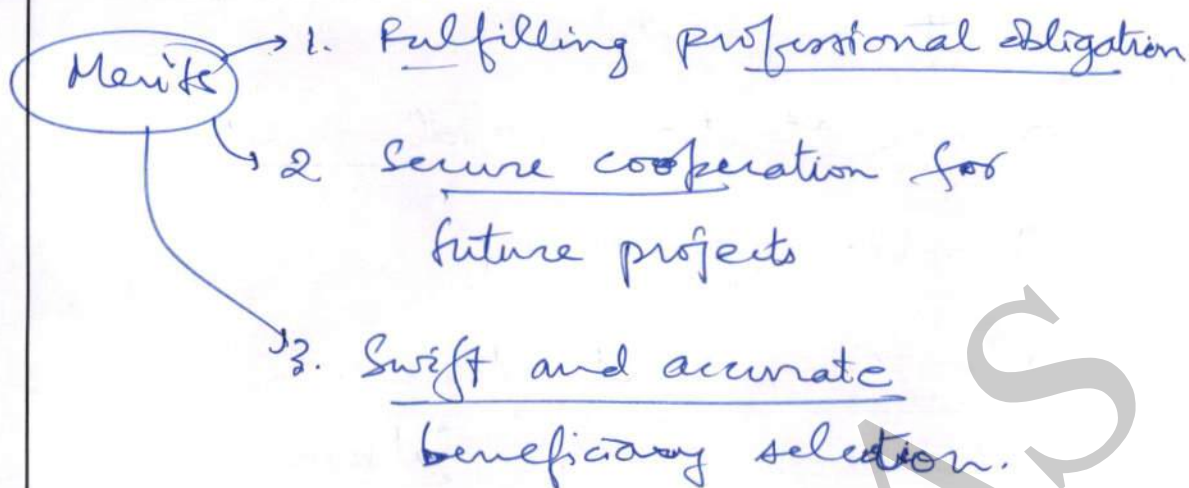 Merits
1. Fulfilling professional obligation
2 Secure cooperation for
future projects
3. Swift and accurate
beneficiary selection.
AS